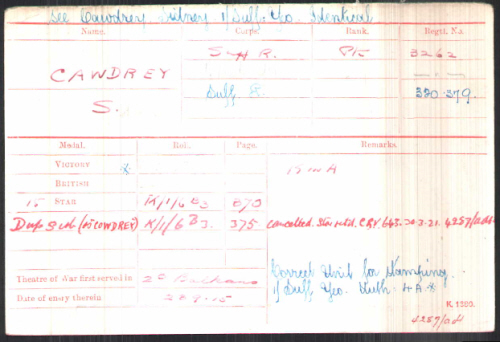 See Cawdrey Sidney 1/Suff. Yeo. Identical
Name. Corps. Rank. Regtl. No.
CAWDREY S.H.R. Pte 3262
S. Suff. 330.379.
Medal. Roll. Page. Remarks.
VICTORY K in A
BRITISH
15 STAR K/1/6 B3 870
Dup. (as COWDREY) K/1/6 B3. 375 Cancelled. Star retd. C.R.V. 643. 20.3.21. 4257/Adt.
Correct Unit for Stamping
Theatre of War first served in 2c Balkans 1/Suff. Yeo. Auth.
Date of entry therein 28.9.15 K. 1380.
4257/Adt